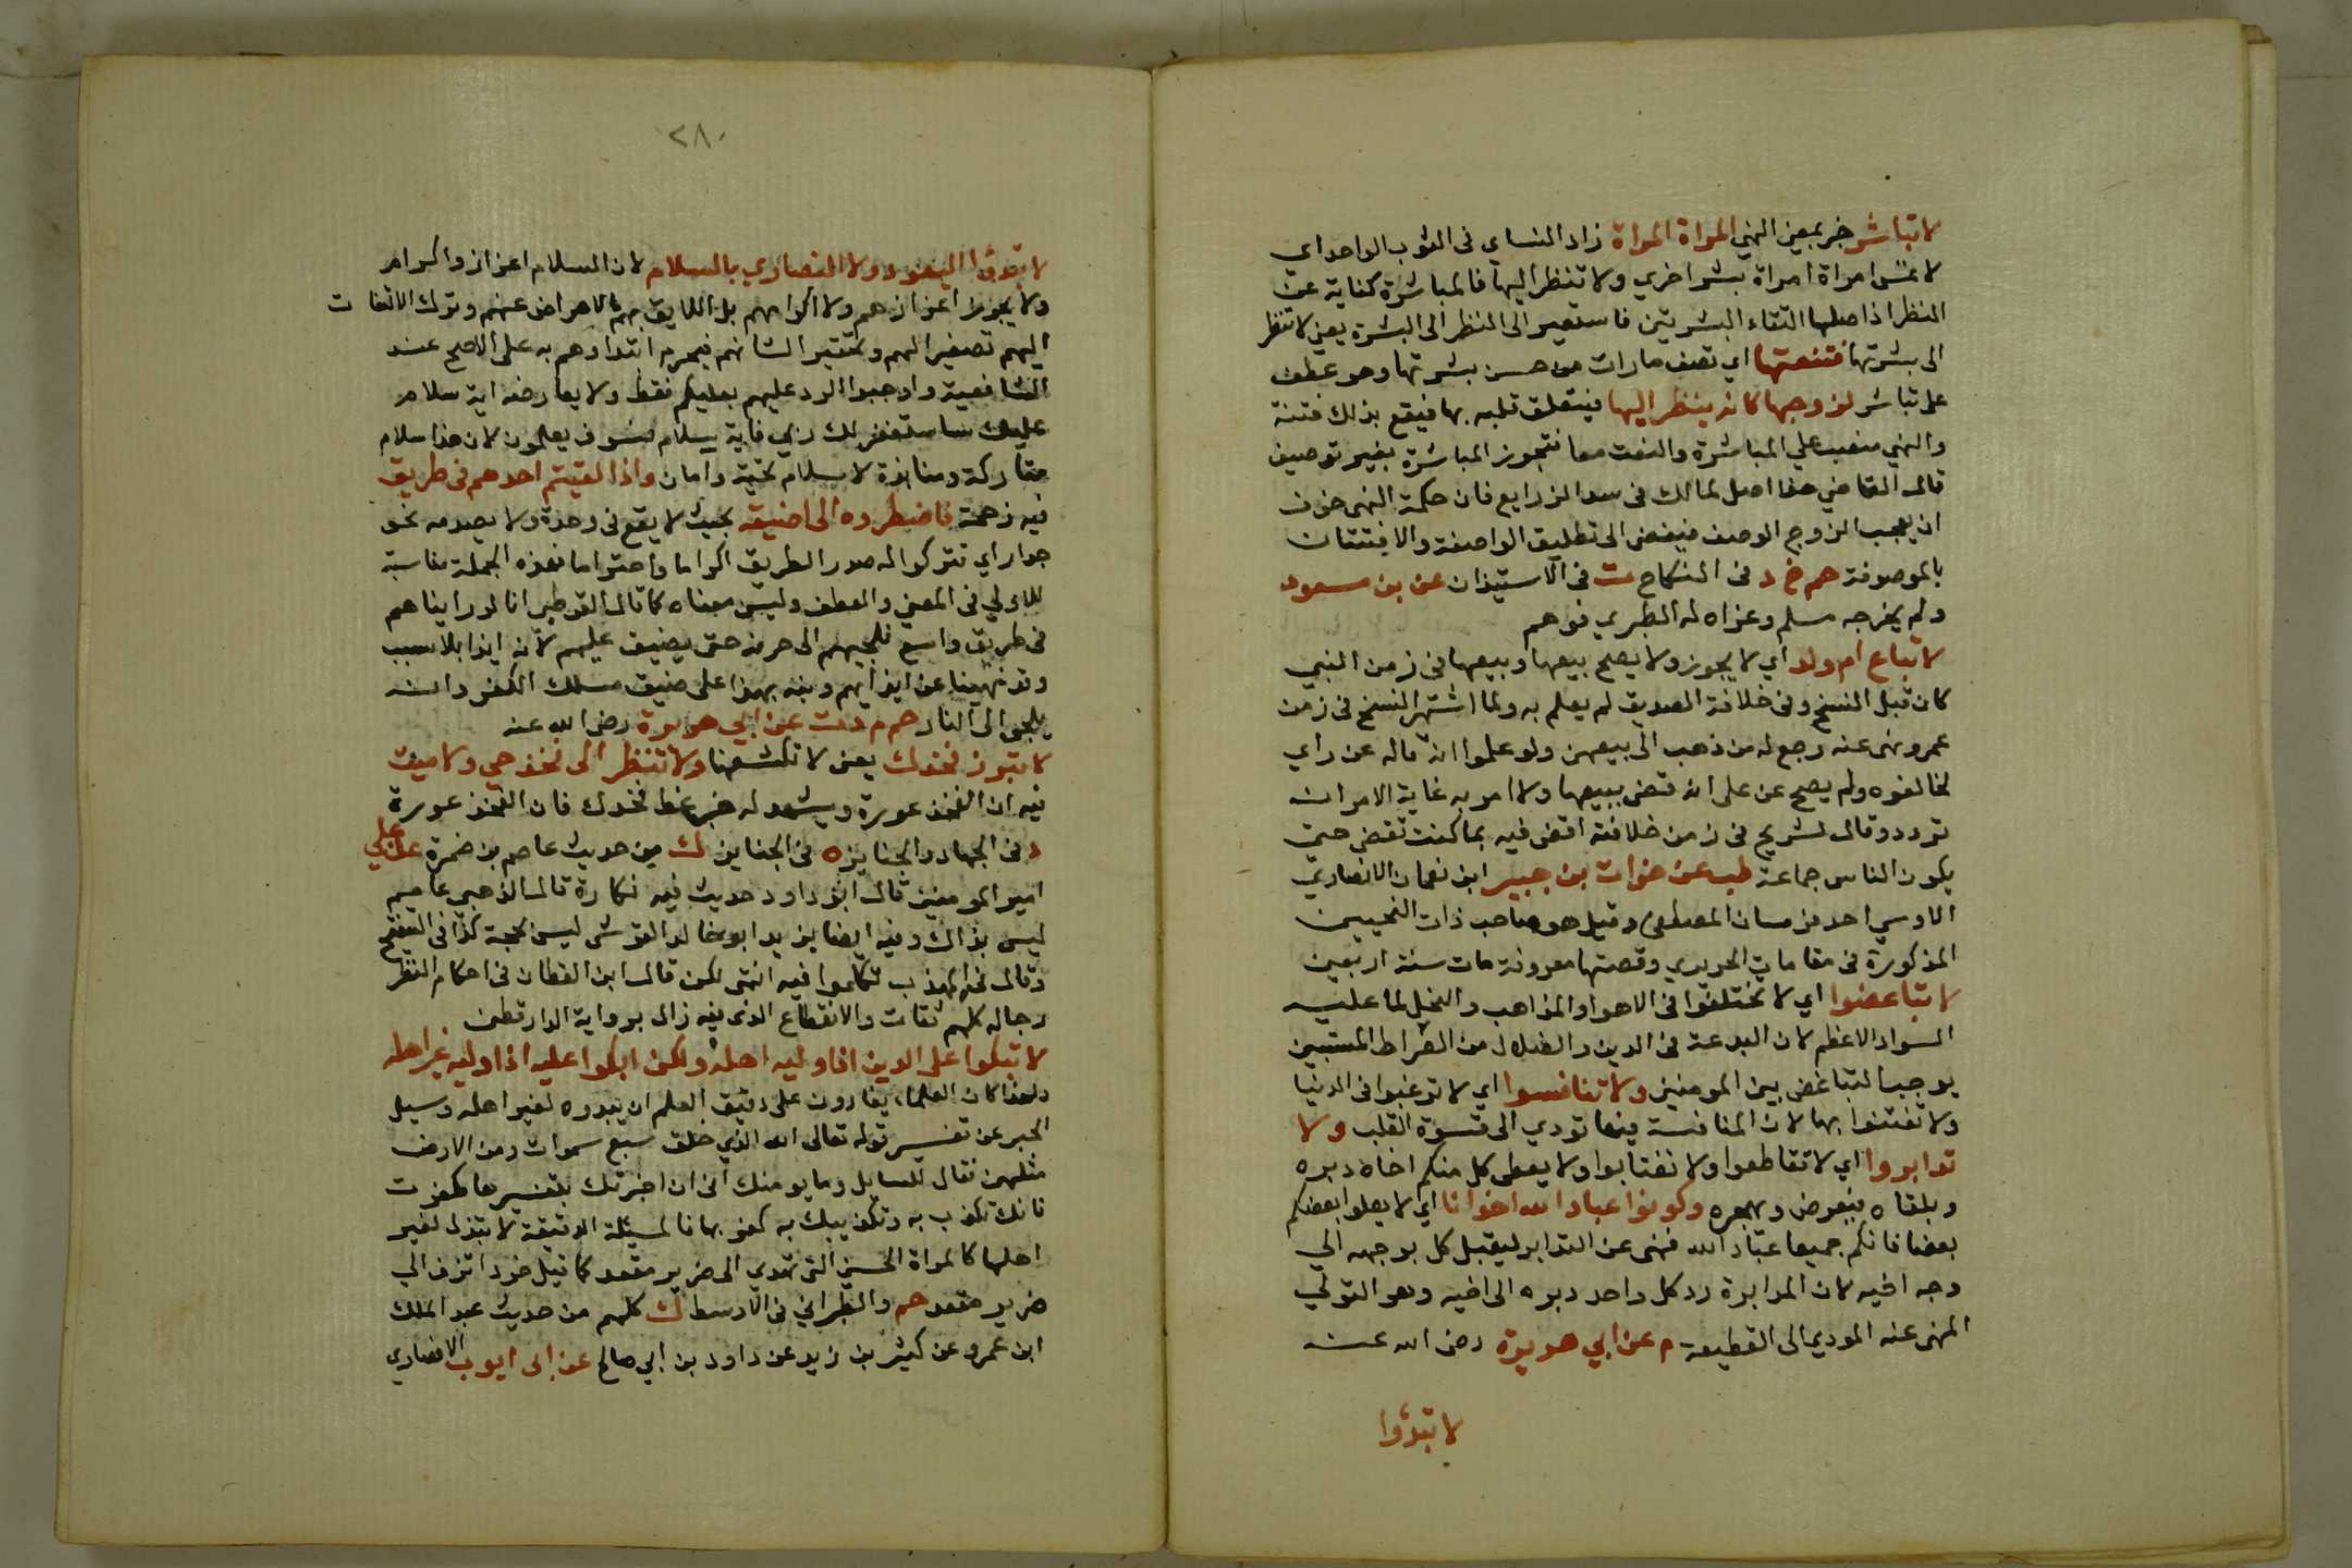 لا تباشر خبر بمعنى النهي المراة المراة زاد النساي في الثوب الواحد اي
لا تمس امراة امراة بشر اخري ولا تنظر اليها فالمباشرة كناية عن
النظر اذ اصلها التقاء البشرتين فاستعير الى النظر الى البشرة يعني لا تنظر
الى بشرتها فتنعتها اي تصف مارات من حسن بشرتها وهو عطف
على تباشر لزوجها كانه ينظر اليها فيتعلق قلبه بها فيقع بذلك فتنة
والنهي منصب علي المباشرة والنعت معا فتجوز المباشرة بغير توصيف
قال القاضي هذا اصل لمالك في سد الذرايع فان حكمة النهي خوف
ان يعجب الزوج الوصف فيفضي الى تطليق الواصفة والافتتان
بالموصوفة حم خ د في النكاح ت في الاستيذان عن بن مسعود
ولم يخرجه مسلم وعزاه له الطبري فوهم
لا تباع ام ولد اي لا يجوز ولا يصح بيعها وبيعها في زمن النبي
كان قبل النسخ وفي خلافة الصديق لم يعلم به ولما اشتهر النسخ في زمن
عمر ونهى عنه رجع له من ذهب الى بيعهن ولو علموا انه قاله عن راي
لخالفوه ولم يصح عن علي انه قضى ببيعها ولا امر به غاية الامر انه
تردد وقال لشريح في زمن خلافته اقض فيه بما كنت تقضي حتى
يكون الناس جماعة طب عن خوات بن جبير ابن نعمان الانصاري
الاوسي احد فرسان المصطفى وقيل هو صاحب ذات النحيين
المذكورة في مقامات الحريري وقصتها معروفة مات سنة اربعين
لا تباغضوا اي لا تختلفوا في الاهوا والمذاهب والنحل لما عليه
السواد الاعظم لان البدعة في الدين والضلال من الصراط المستبين
يوجب التباغض بين المومنين ولا تنافسوا اي لا ترغبوا في الدنيا
ولا تفتنوا بها لان المنافسة فيها تودي الى قسوة القلب ولا
تدابروا اي لا تقاطعوا ولا تغتابوا ولا يعطى كل منكم اخاه دبره
ويلقاه فيعرض ويهجره وكونوا عباد الله اخوانا اي لا يعلوا بعضكم
بعضا فانكم جميعا عباد الله فنهى عن التدابر ليقبل كل بوجهه الي
وجه اخيه لان المدابرة رد كل واحد دبره الى اخيه وهو التولي
المنهى عنه المودي الى القطيعة م عن ابي هريرة رضى الله عنه
لا تبدؤا
٢٨٠
لا تبدؤا اليهود ولا النصاري بالسلام لان السلام اعزاز واكرام
ولا يجوز اعزازهم ولا اكرامهم بل اللايق بهم الاعراض عنهم وترك الالتفات
اليهم تصغيرا لهم وتحقيرا لشانهم فيحرم ابتداوهم به على الاصح عند
الشافعية واوجبوا الرد عليهم بعليكم فقط ولا يعارضه اية سلام
عليك ساستغفر لك ربي واية سلام فسوف يعلمون لان هذا سلام
متاركة ومنابذة لا سلام تحية وامان واذا لقيتم احدهم في طريق
فيه زحمة فاضطروه الى اضيقه بحيث لا يقع في وهدة ولا يصدمه نحو
جدار اي تتركوا له صدر الطريق اكراما واحتراما فهذه الجملة مناسبة
للاولى في المعنى والعطف وليس معناه كما قال القرطبي انا لو راينا هم
في طريق واسع نلجيهم الى حرفه حتى يضيق عليهم لانه ايذا بلا سبب
وقد نهينا عن ايذائهم ونبه بهذا على ضيق مسلك الكفر وانه
يلجي الى النار حم م د ت عن ابي هريرة رضى الله عنه
لا تبرز فخذك يعني لا تكشفها ولا تنظر الى فخذ حي ولا ميت
فيه ان الفخذ عورة ويشهد له خبر غط فخذك فان الفخذ عورة
د في الجهاد والجنايز ه في الجنايز ك من حديث عاصم بن ضمرة عن علي
امير المومنين قال ابو داود حديث فيه نكارة قال الذهبي عاصم
ليس بذاك وفيه ايضا يزيد ابو خالد القرشي ليس بحجة كذا في التنقيح
وقال في المهذب تكلموا فيه انتهى لكن قال ابن القطان في احكام النظر
رجاله كلهم ثقات والانقطاع الذي فيه زال برواية الدارقطني
لا تبكوا على الدين اذا وليه اهله ولكن ابكوا عليه اذا وليه غير اهله
ولهذا كان العلماء يغارون على دقيق العلم ان يبدوه لغير اهله وسيل
الحبر عن تفسير قوله تعالى الله الذي خلق سبع سموات ومن الارض
مثلهن فقال للسايل وما يومنك انى ان اخبرتك بتفسيرها كفرت
فانك تكذب به وتكذيبك به كفر بها فالمسئلة الدقيقة لا تبذل لغير
اهلها كالمراة الحسنى التي تهدي الى ضرير مقعد كما قيل خود تزف الي
ضرير مقعد حم والطبراني في الاوسط ك كلهم من حديث عبد الملك
ابن عمرو عن كثير بن زيد عن داود بن ابي صالح عن ابى ايوب الانصاري